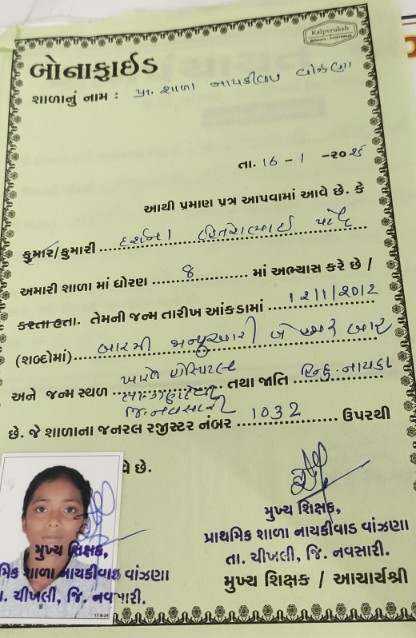 Kalpvruksh
બોનાફાઈડ
શાળાનું નામ : પ્રા. શાળા નાયકીવાડ વાંઝણા
તા. 16 - 1 - ૨૦૨૬
આથી પ્રમાણ પત્ર આપવામાં આવે છે. કે
કુમાર/કુમારી દર્શના
અમારી શાળા માં ધોરણ 8 માં અભ્યાસ કરે છે /
કરતા હતા. તેમની જન્મ તારીખ આંકડામાં 12/1/2012
(શબ્દોમાં) બારમી જાન્યુઆરી બે હજાર બાર
અને જન્મ સ્થળ હોસ્પિટલ તથા જાતિ હિન્દુ. નાયકા
જિ.નવસારી
છે. જે શાળાના જનરલ રજીસ્ટર નંબર 1032 ઉપરથી
છે.
મુખ્ય શિક્ષક,
પ્રાથમિક શાળા નાયકીવાડ વાંઝણા
તા. ચીખલી, જિ. નવસારી.
મુખ્ય શિક્ષક / આચાર્યશ્રી
મુખ્ય શિક્ષક,
મિક શાળા નાયકીવાડ વાંઝણા
ચીખલી, જિ. નવસારી.